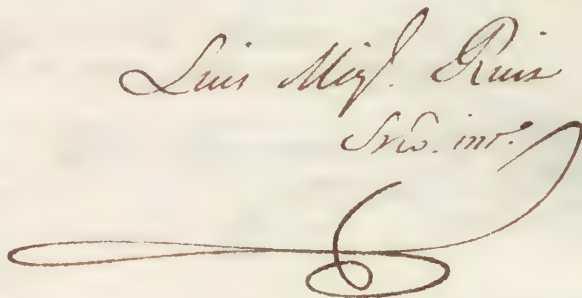 Luis Migl. Ruis
Srio. into.